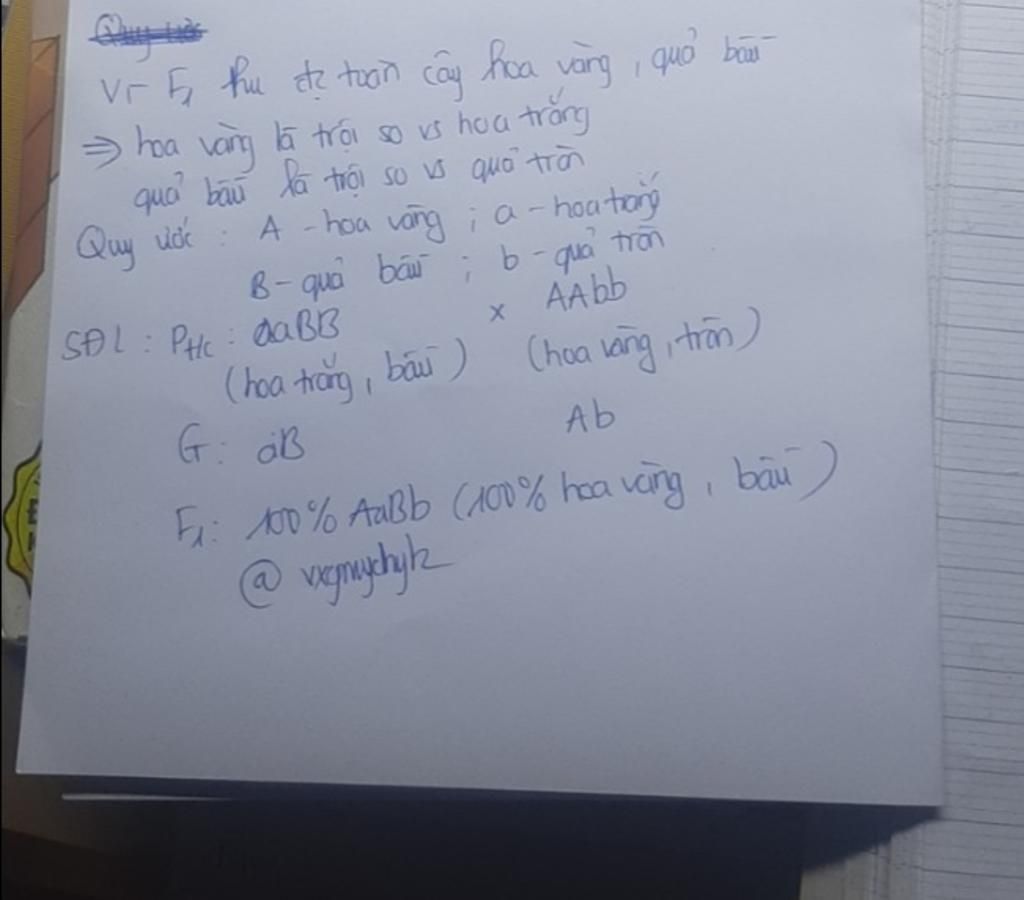 Vì F₁ thu đc toàn cây hoa vàng, quả bầu
⇒ hoa vàng là trội so vs hoa trắng
quả bầu là trội so vs quả tròn
Quy ước : A - hoa vàng ; a - hoa trắng
B - quả bầu ; b - quả tròn
SĐL : Pt/c : aaBB x AAbb
(hoa trắng, bầu) (hoa vàng, tròn)
G : aB Ab
F₁ : 100% AaBb (100% hoa vàng, bầu)
@